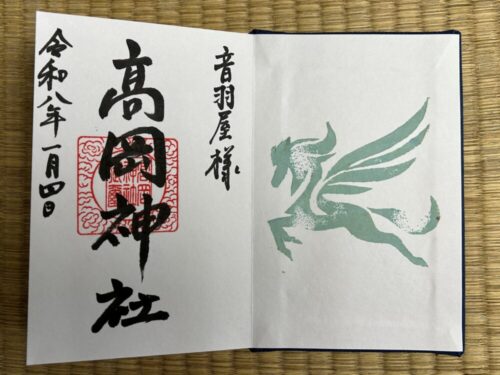 音羽屋様
高岡神社
令和八年一月四日